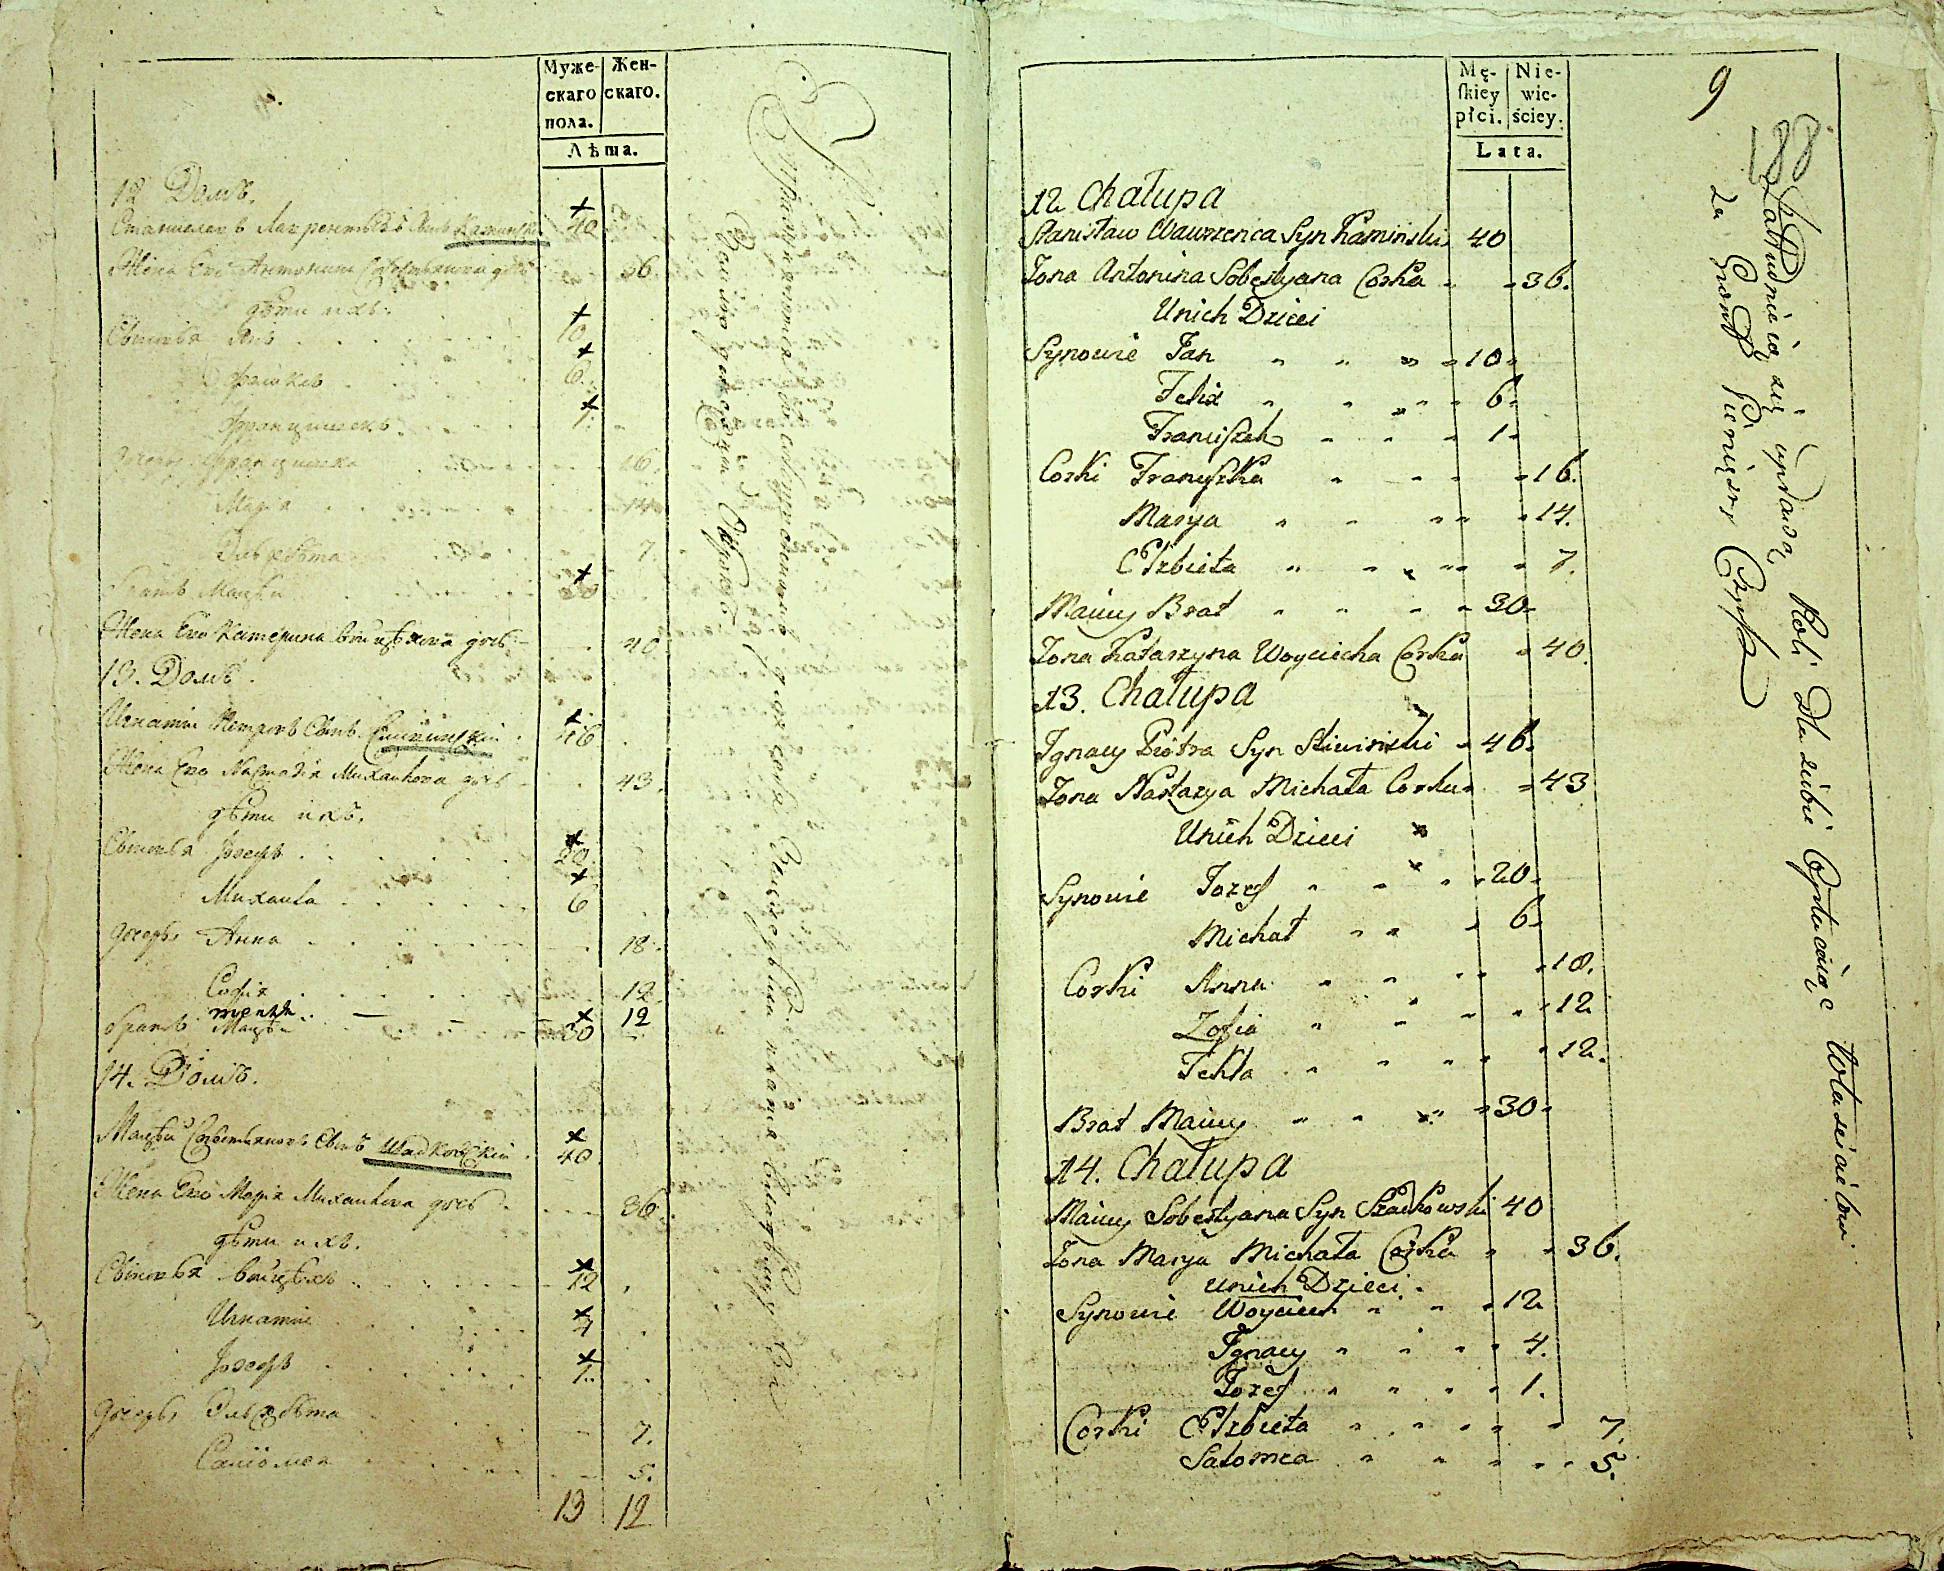 Муже-
скаго
пола.
Жен-
скаго.
Лѣта.
12 Домъ.
Станиславъ Лаврентьевъ Сынъ Каминскі 40
Жена Его Антонина Себестьянова дочь 36.
дѣти ихъ.
Сыновья Янъ 10
6.
Францишекъ 1.
дочери Францишка 16.
Марія 14
Эльжбѣта 7.
братъ Мацѣй 30
Жена Его Катерина Войцѣхова дочь 40
13. Домъ.
Игнатіи Петровъ Сынъ 46
Жена Его Настазія Михайлова дочь 43.
дѣти ихъ.
Сыновья Іосефъ 20
Михаила 6
дочерь Анна 18.
Софія 12
текля 12
братъ Мацѣй 30
14. Домъ.
Мацѣй Собестьяновъ Сынъ Шадковскій 40
Жена Его Марія Михайлова дочь 36.
дѣти ихъ.
Сыновья Войцѣхъ 12
Игнатіи 4
Іосефъ 1.
дочерь Эльжбѣта 7.
Саломея 5.
13 12
Mę-
skiey
płci.
Nie-
wie-
ściey.
Lata.
9
188
12 Chałupa
Stanisław Wawrzenca Syn Kaminski 40
Zona Antonina Sobestyana Corka 36.
Unich Dzieci
Synowie Jan 10
Felix 6
Franciszek 1
Corki Franciszka 16.
Marya 14.
Elzbieta 7.
Maciey Brat 30
Zona Katarzyna Woyciecha Corka 40.
13. Chałupa
Ignacy Piotra Syn Sliwinski 46.
Zona Nastazya Michała Corka 43
Unich Dzieci
Synowie Jozef 20
Michał 6
Corki Anna 18.
Zofia 12
Tekla 12.
Brat Maciey 30
14. Chałupa
Maciey Sobestyana Syn Szadkowski 40
Zona Marya Michała Corka 36.
Unich Dzieci
Synowie Woyciech 12
Ignacy 4.
Jozef 1.
Corki Elzbieta 7.
Salomea 5.
Zatrudnieią się uprawą Roli Dla siebie Opłacaiąc Własciciełowi
za Gront Pieniężny Czynsz